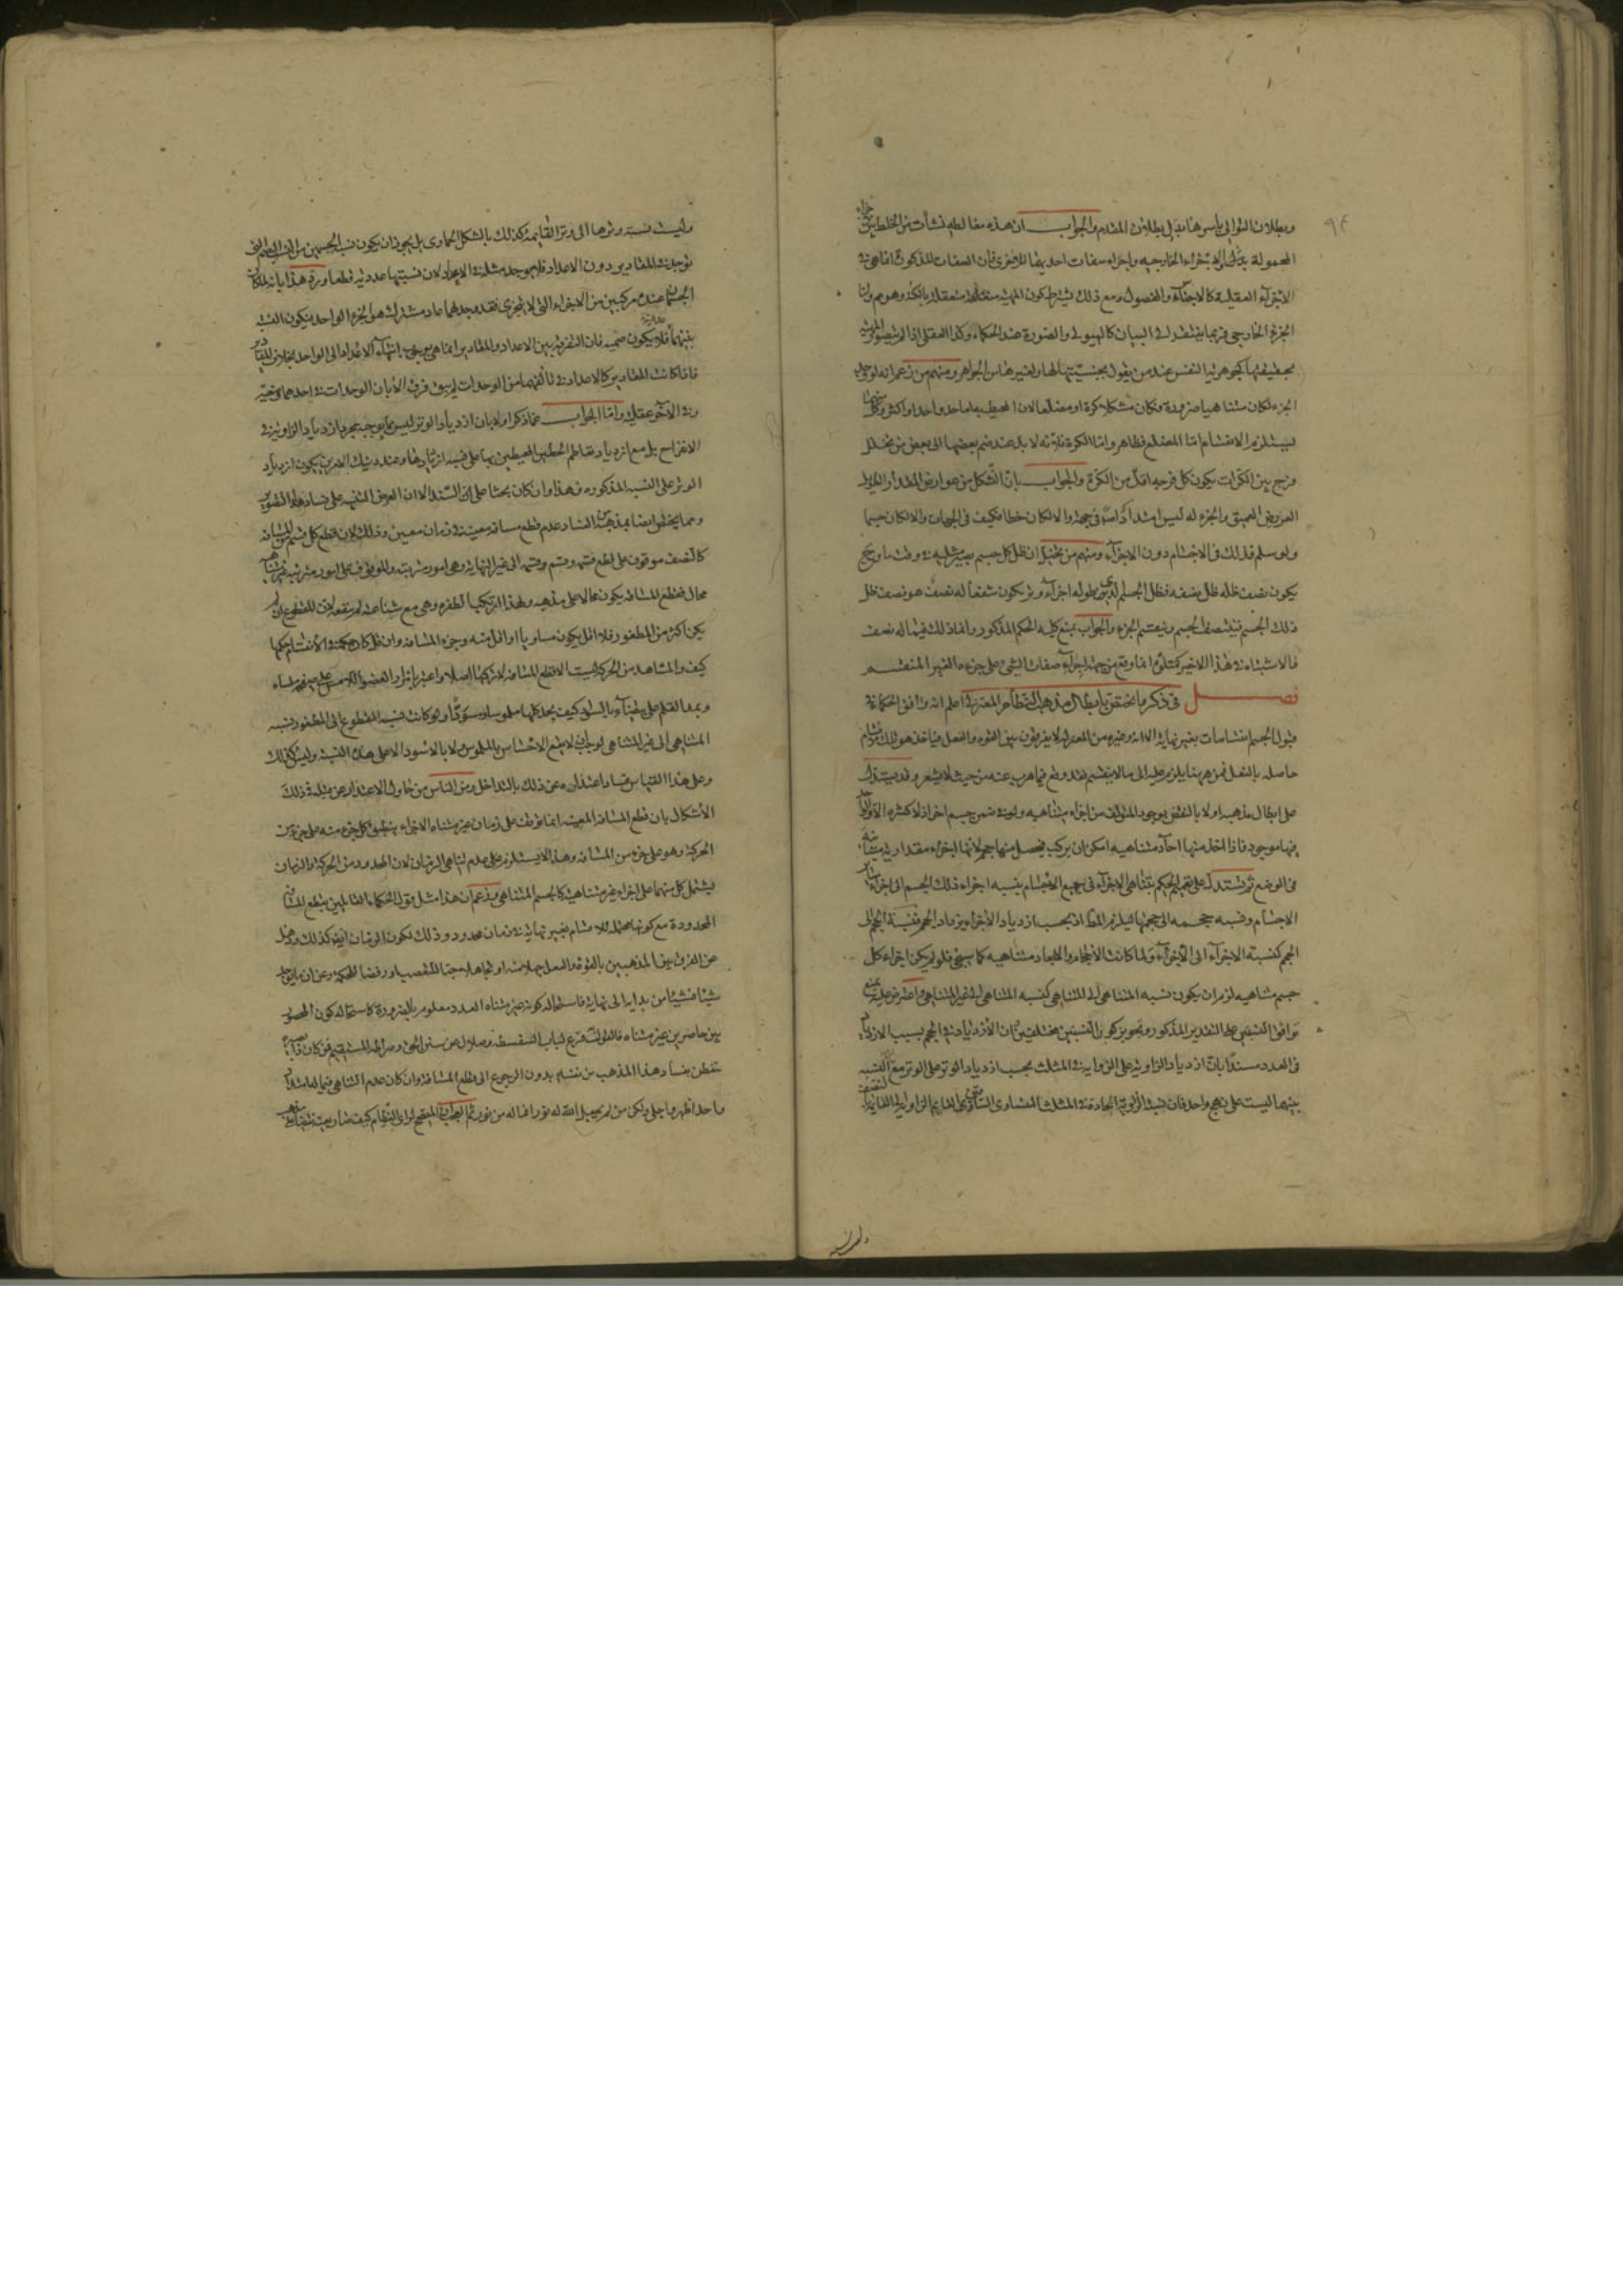 وبطلان التوالى باسرها يدل بطلان المقدم والجواب ان هذه مغالطه نشأت من الخلط بين اجزاء
المحمولة والاجزاء الخارجيه واجراء صفات احديهما للاخرى فان الصفات المذكورة انما هى فى
الاجزآء العقلية كالاجناس والفصول ومع ذلك يشترط كون المهية متعقلة بالكنه وهو هم واما
الجزء الخارجى فربما يفتقر فى البيان كالهيولى والصورة عند الحكماء وكذا العقلى اذا لم يتصور المهية
بحقيقتها كجوهرية النفس عند من يقول بجنسيتها لها ولغيرها من الجواهر ومنهم من زعم انه لو وجد
الجزء لكان متناهيا ضرورة فكان مشكلا كرة او مضلعا لان المحيط به اما حد واحد او اكثر وكل منهما
يستلزم الانقسام اما المضلع فظاهر واما الكرة فلانه لا بد عند ضم بعضها الى بعض من تخلل
فرج بين الكرات يكون كل فرجه اقل من الكرة والجواب بان الشكل من عوارض المقدار الطويل
العريض العميق والجزء له ليس امتداد اصلا فى جهة والا لكان خطا فكيف فى الجهات والا لكان جسما
ولو سلم فذلك فى الاجسام دون الاجزآء ومنهم من تخيل ان ظل كل جسم يصير مثليه فى وقت ما وح
يكون نصف ظله ظل نصفه فظل الجسم الذى طوله اجزآء وتر يكون شفعا له نصف هو نصف ظل
ذلك الجسم فينتصف الجسم وينقسم الجزء والجواب بمنع كلية الحكم المذكور وانما ذلك فيما له نصف
فالاشتباه فى هذا الاخير انما وقع من جهة اجرآء صفات الشئ على جزءه الغير المنقسم
فصل فى ذكر ما يختص بابطال مذهب النظام المعتزلى اعلم انه وافق الحكماء فى
قبول الجسم انقسامات بغير نهاية الا انه وغيره من المعتزلة لا يفرقون بين القوه والفعل فياخذ هو تلك الاقسام
حاصله بالفعل فمن هيهنا يلزم عليه الى ما لا ينقسم فقد وقع فيما هرب عنه من حيث لا يشعر وقد يستدل
على ابطال مذهبه اولا بالنقض بوجود المؤلف من اجزاء متناهيه ولو فى ضمن جسم اخر اذ لا كثره الا والواحد
فيها موجود فاذا اخذ منها احاد متناهيه امكن ان يركب فيحصل منها حجم
فى الوضع ثم يستدل على تعميم الحكم بتناهى الاجزآء فى جميع الاجسام بنسبه اجزاء ذلك الجسم الى اجزاء سائر
الاجسام ونسبه حجمه الى حجمها فيلزم المط اذ بحسب ازدياد الاجزاء يزداد الحجم فنسبة الحجم الى
الحجم كنسبة الاجزآء الى الاجزآء ولما كانت الاحجام والابعاد متناهيه كما سيجئ فلو لم يكن اجزاء كل
جسم متناهيه لزم ان يكون نسبه المتناهى الى المتناهى كنسبه المتناهى الى غير المتناهى واعترض عليه بمنع
توافق النسبتين على التقدير المذكور وتجويز كون النسبتين مختلفتين فان الازدياد فى الحجم بسبب الازدياد
فى العدد مستندا بان ازدياد الزاويه على الزاويه فى المثلث بحسب ازدياد الوتر على الوتر مع ان النسبه
بينهما ليست على نهج واحد فان نسبة الزاوية الحادة فى المثلث المتساوى الساقين القايم الزاويه الى القائمة بالنصف
وليست نسبه وترها الى وتر القايمة كذلك بالشكل الحمارى بل يجوز ان يكون نسبة الجسمين من النسب الصم التى
توجد فى المقادير دون الاعداد فلا يوجد مثله فى الاعداد لان نسبتها عددية قطعا ورد هذا بانه لما كان
الجسمان عنده مركبين من الاجزاء التى لا تتجزى فقد وجد لهما عاد مشترك هو الجزء الواحد فيكون النسبة
بينهما عددية فلا يكون صميه فان التفرقة بين الاعداد والمقادير انما هى بوجوب انتهاء الاعداد الى الواحد بخلاف المقادير
فاذا كانت المقادير كالاعداد فى تألفهما من الوحدات لم يبق فرق الا بان الوحدات فى احدهما وضعية
وفى الآخر عقلية واما الجواب عما ذكر اولا بان ازدياد الوتر ليس بمجرد ازدياد الزاويه فى
الانفراج بل مع ازدياد تقاطع الخطين المحيطين بها على نسبه ازديادها وعند ذينك الامرين يكون ازدياد
الوتر على النسبه المذكوره فهذا وان كان بحثا على السند الا ان الغرض التنبيه على فساد هذا التصوير
ومما يختص ايضا بمذهبه من الفساد عدم قطع مسافة معينة فى زمان معين وذلك لان قطع كل قسم من المسافه
كالنصف موقوف على قطع قسمه وقسم وقسمه الى غير النهاية وهى امور مترتبه والموقوف على امور مترتبه غير متناهيه
محال فقطع المسافه يكون محالا على مذهبه ولهذا ارتكبوا الطفره وهى مع شناعته لم ينفعه لان المقطوع ان لم
يكن اكثر من المطفور فلا اقل يكون مساويا او اقل منه وجزء المسافه وان قل كان حكمه فى الانقسام حكمها
كيف والمشاهد من الحركة ليست الا قطع المسافه لا تركها اصلا واعتبر بامرار العضو اللامس على صفحه ملساء
وبمد القلم على بيضآء بالسواد كيف يحد كلها ملموسا ومسودا ولو كانت نسبه المقطوع الى المطفور نسبه
المتناهى الى غير المتناهى لوجب ان لا يقع الاحساس بالملموس ولا بالاسود الا على هذه النسبة وليس كذلك
وعلى هذا القياس فساد اعتذاره عن ذلك بالتداخل ومن الناس من حاول الاعتذار عن مثبله ذلك
الاشكال بان قطع المسافه المعينه انما يتوقف على زمان غير متناه الاجزاء ينطبق كل جزء منه على جزء من
الحركة وهو على جزء من المسافه وهذا لا يستلزم على عدم تناهى الزمان لان المحدود من الحركة والزمان
يشتمل كل منهما على اجزاء غير متناهية كالجسم المتناهى وزعم ان هذا مثل قول الحكماء القائلين بقطع المسافه
المحدودة مع كونها محتمله للانقسام بغير نهاية فى زمان محدود وذلك لكون الزمان ايضا كذلك وذهل
عن الفرق بين المذهبين بالقوة والفعل جهلا منه او تجاهلا محبا للتعصب ورفضا للحكمة وعن ان ما يوجد
شيئا فشيئا من بدايه الى نهاية فاستحاله كونه غير متناه العدد معلوم بالضرورة كاستحاله كون المحصور
بين حاصرين غير متناه فالقول به قرع لباب السفسطه وضلال عن سنن الحق وصراطه المستقيم فمن كان ذا بصيره
تفطن بفساد هذا المذهب من نفسه بدون الرجوع الى قطع المسافة وان كان عدم التناهى فيما له امتداد
واحد اظهر واجلى ولكن من لم يجعل الله له نورا فما له من نور ثم العجب